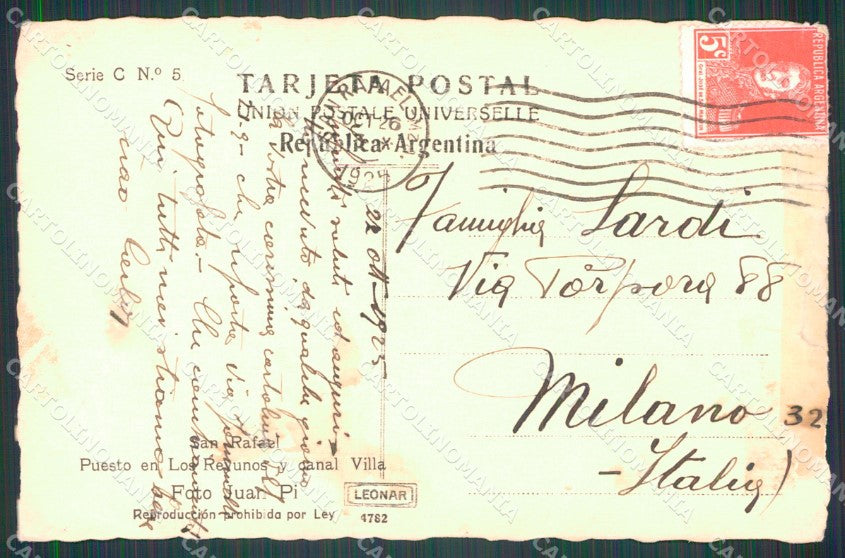 Serie C N.º 5
TARJETA POSTAL
UNION POSTALE UNIVERSELLE
República Argentina
5c
REPUBLICA ARGENTINA
SAN RAFAEL
OCT 26
22 ott-1925
saluti ed auguri
ricevuto da qualche giorno
la vostra carissima cartolina
che riporta Via
fotografata.- Che
Qui tutti noi stiamo bene
ciao
Famiglia Lardi
Via Pórpora 88
Milano 32
-Italia)
San Rafael
Puesto en Los Reyunos y canal Villa
Foto Juan Pi
LEONAR
Reproducción prohibida por Ley
4762
CARTOLINOMANIA